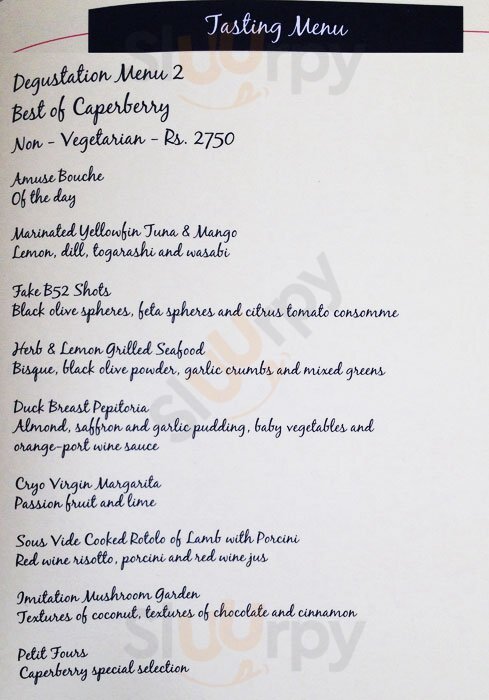 Tasting Menu
Degustation Menu 2
Best of Caperberry
Non - Vegetarian - Rs. 2750
Amuse Bouche
Of the day
Marinated Yellowfin Tuna & Mango
Lemon, dill, togarashi and wasabi
Fake B52 Shots
Black olive spheres, feta spheres and citrus tomato consomme
Herb & Lemon Grilled Seafood
Bisque, black olive powder, garlic crumbs and mixed greens
Duck Breast Pepitoria
Almond, saffron and garlic pudding, baby vegetables and
orange-port wine sauce
Cryo Virgin Margarita
Passion fruit and lime
Sous Vide Cooked Rotolo of Lamb with Porcini
Red wine risotto, porcini and red wine jus
Imitation Mushroom Garden
Textures of coconut, textures of chocolate and cinnamon
Petit Fours
Caperberry special selection
sluurpy
sluurpy
sluurpy